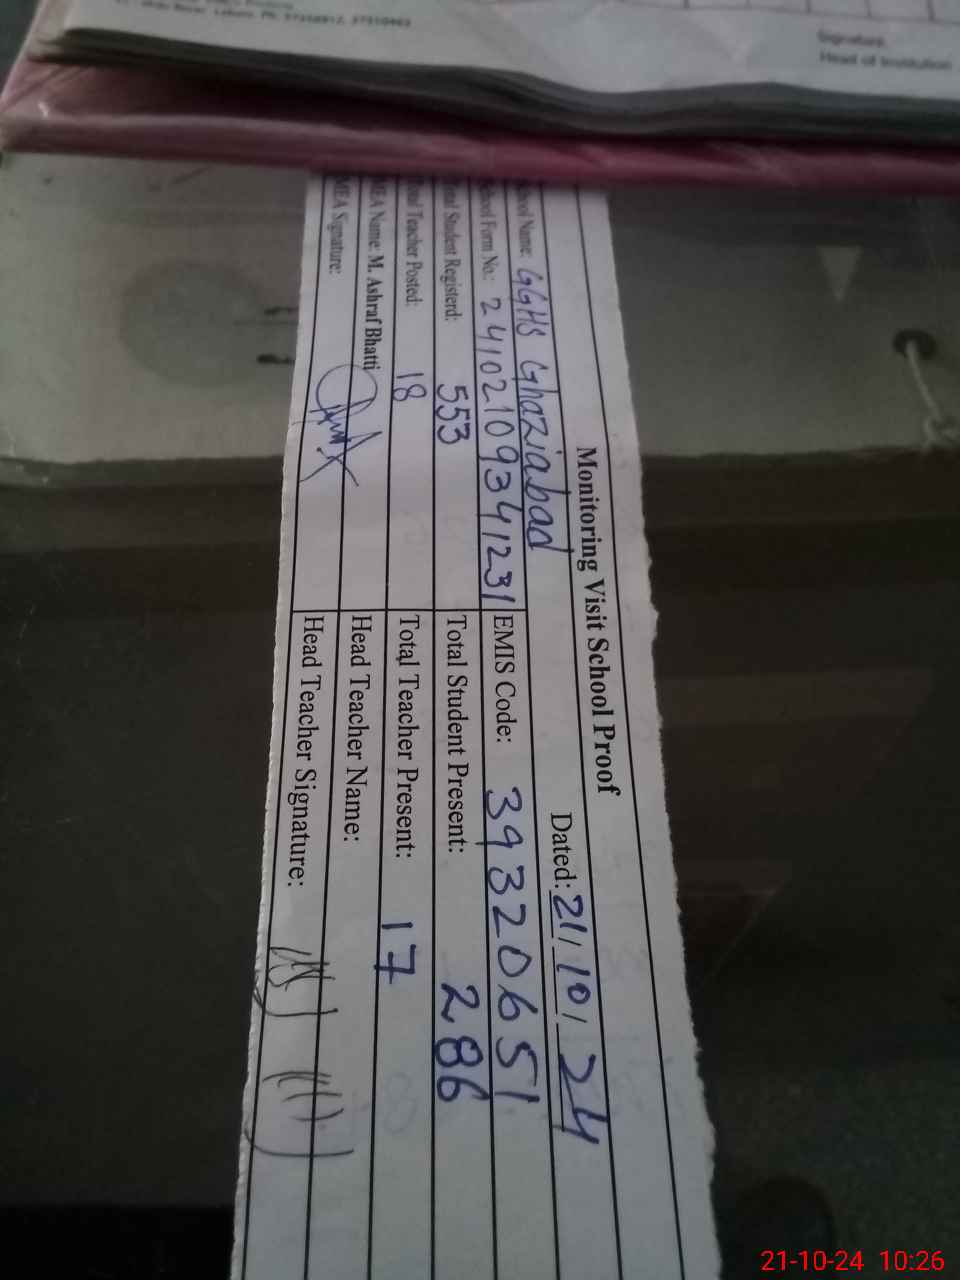 Signature
Head of Institution
Monitoring Visit School Proof
Dated: 21/10/24
School Name: GGHS Ghaziabad
School Form No.: 24102109341231 EMIS Code: 39320651
Total Student Registerd: 553 Total Student Present: 286
Total Teacher Posted: 18 Total Teacher Present: 17
MEA Name: M. Ashraf Bhatti Head Teacher Name:
MEA Signature: Head Teacher Signature:
21-10-24 10:26